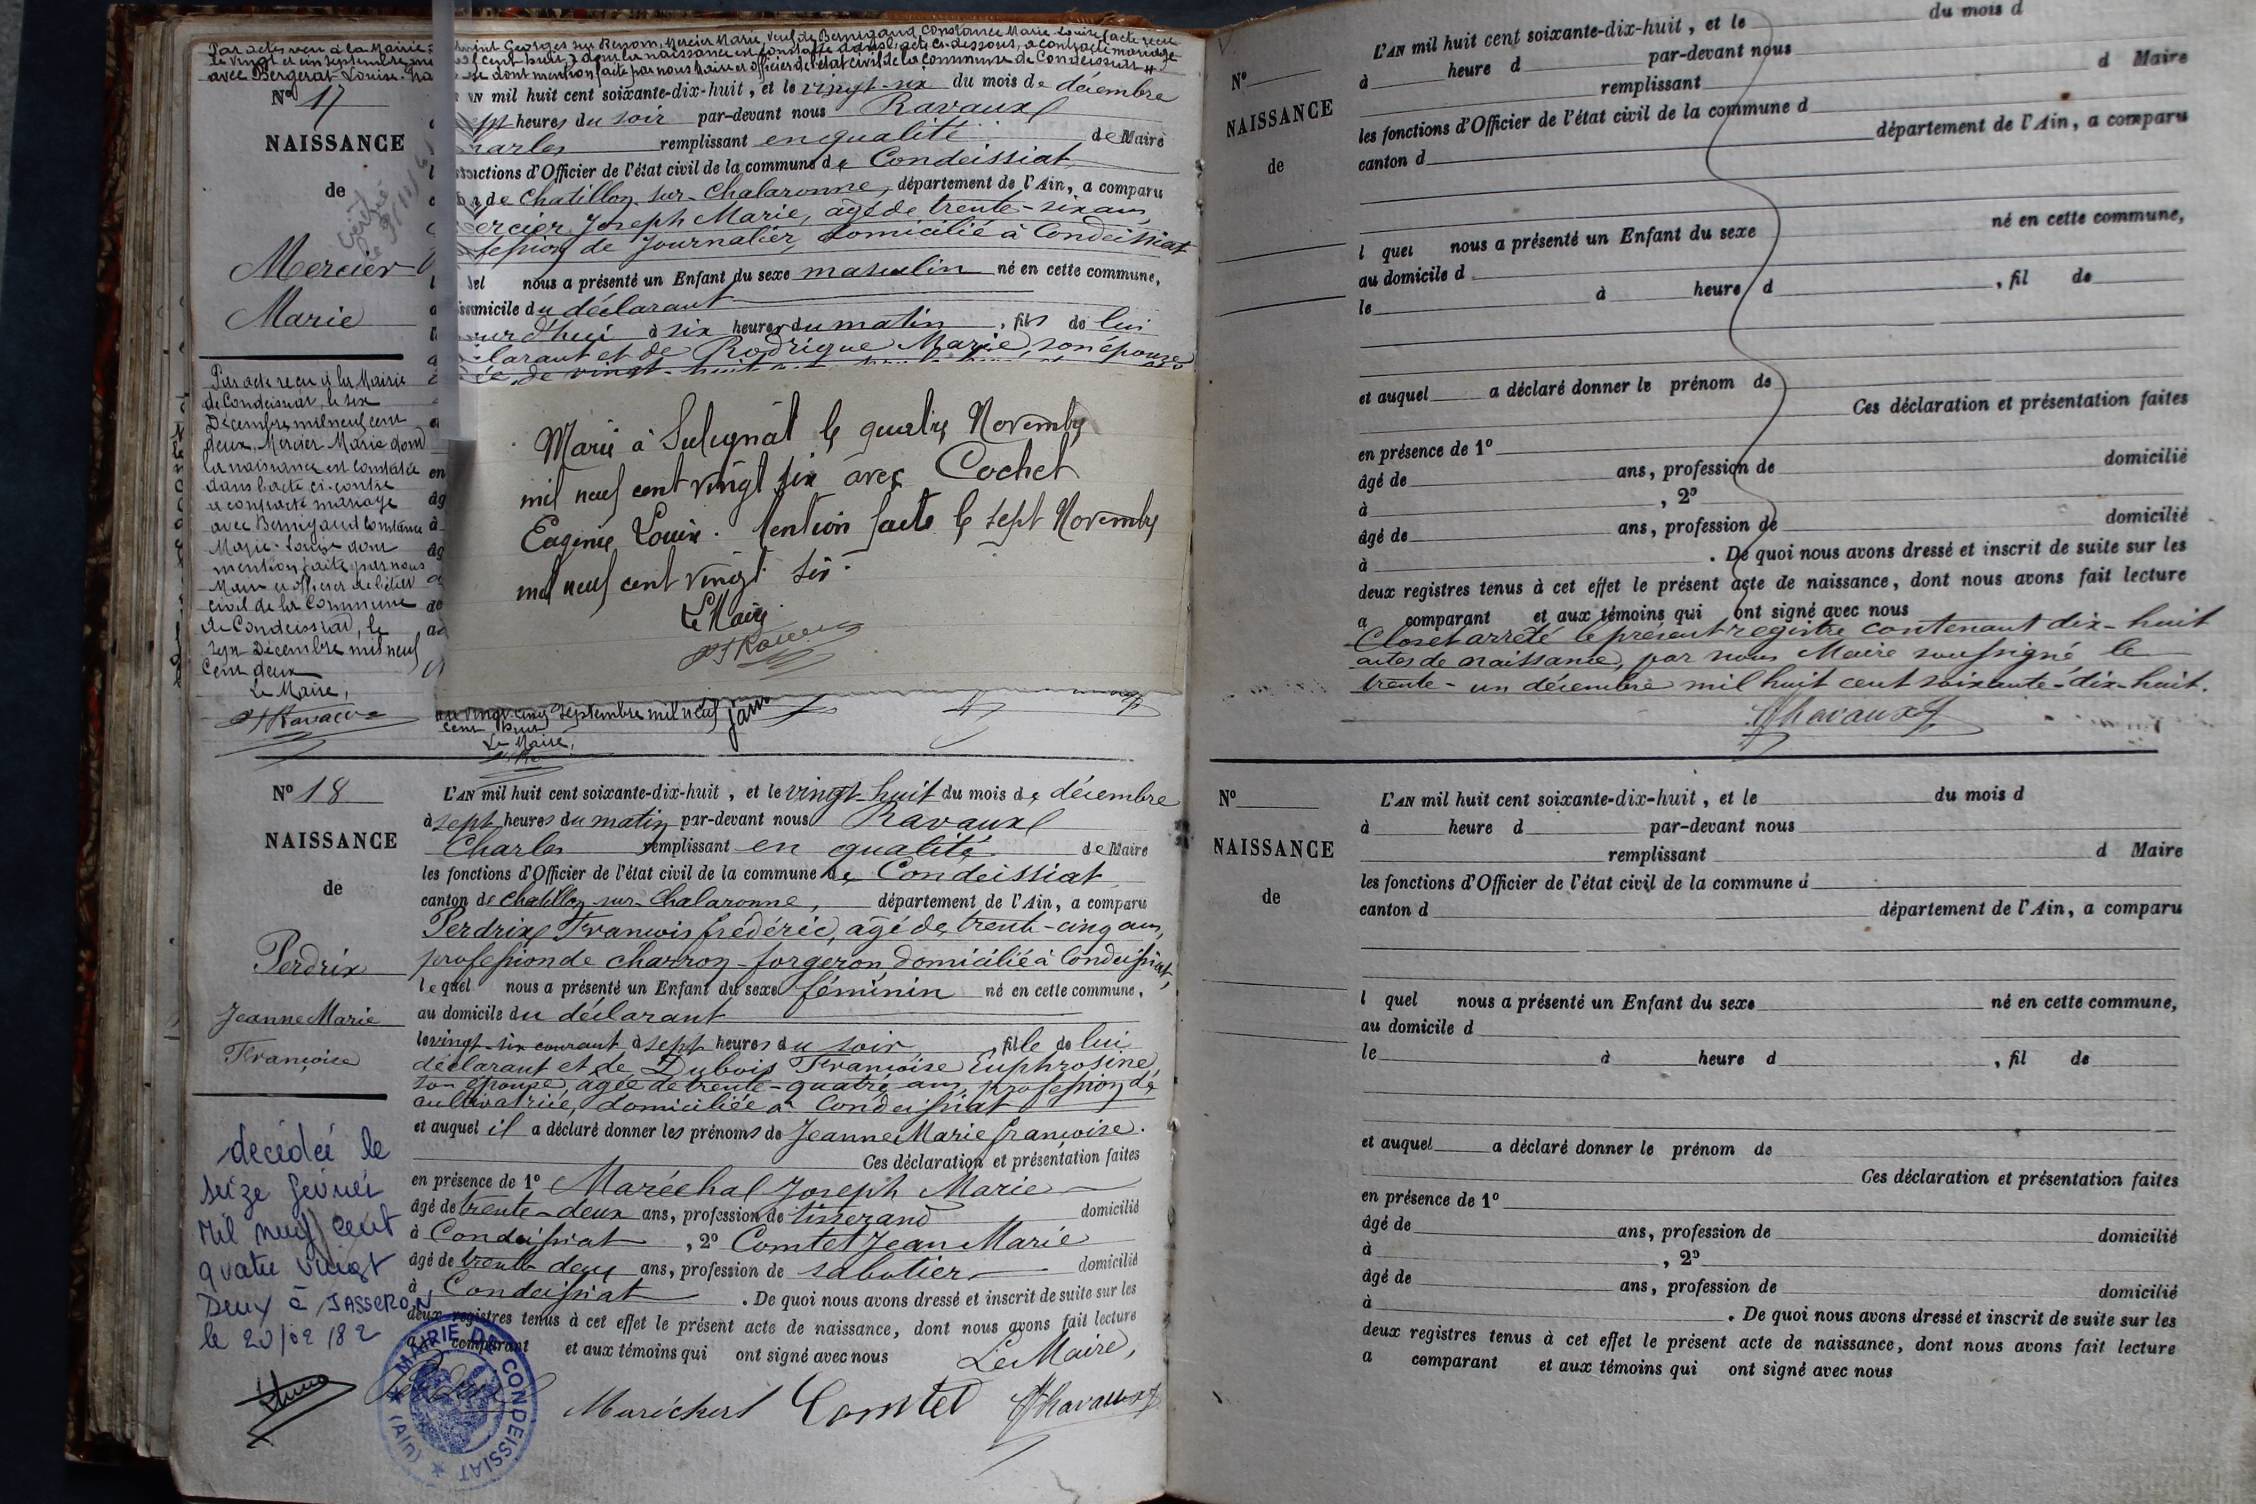 Par acte reçu à la Mairie
le vingt et un septembre mil
avec Bergerat Louise.
Saint Georges sur Renom, Mercier Marie, veuf de Bernigaud Constance Marie Louise (acte reçu
cent huit) dont la naissance est constatée dans l'acte ci-dessous, a contracté mariage
dont mention faite par nous Maire et officier de l'état civil de la commune de Condeissiat
N° 17
NAISSANCE
de
Mercier
Marie
vérifié
mil huit cent soixante-dix-huit, et le vingt-six du mois de décembre
heures du soir par-devant nous Ravaux
Charles remplissant en qualité de Maire
fonctions d'Officier de l'état civil de la commune de Condeissiat
de Chatillon-sur-Chalaronne, département de l'Ain, a comparu
Mercier Joseph Marie, agé de trente-six ans,
fession de Journalier, domicilié à Condeissiat
nous a présenté un Enfant du sexe masculin né en cette commune,
domicile du déclarant
à six heures du matin, fils de lui
clarant et de Rodrigue Marie, son épouse
de vingt-huit
Par acte reçu à la Mairie
de Condeissiat, le six
Décembre mil neuf cent
deux, Mercier Marie dont
la naissance est constatée
dans l'acte ci-contre
a contracté mariage
avec Bernigaud Constance
Marie-Louise dont
mention faite par nous
Maire et officier de l'état
civil de la Commune
de Condeissiat, le
sept Décembre mil neuf
Cent deux
Le Maire,
Ravaux
Marié à Sulignat le quatre Novembre
mil neuf cent vingt six avec Cochet
Eugénie Louise. Mention faite le sept Novembre
mil neuf cent vingt six.
Le Maire
vingt cinq septembre mil neuf
cent huit
Le Maire,
N° 18
NAISSANCE
de
Perdrix
Jeanne Marie
Françoise
L'AN mil huit cent soixante-dix-huit, et le vingt-huit du mois de décembre
à sept heures du matin par-devant nous Ravaux
Charles remplissant en qualité de Maire
les fonctions d'Officier de l'état civil de la commune de Condeissiat
canton de Chatillon-sur-Chalaronne, département de l'Ain, a comparu
Perdrix François frédéric, agé de trente-cinq ans,
profession de charron-forgeron, domicilié à Condeissiat,
lequel nous a présenté un Enfant du sexe féminin né en cette commune,
au domicile du déclarant
le vingt-six courant à sept heures du soir, fille de lui
déclarant et de Dubois Françoise Euphrosine,
son épouse, agée de trente-quatre ans, profession de
cultivatrice, domiciliée à Condeissiat
et auquel il a déclaré donner les prénoms de Jeanne Marie françoise.
Ces déclaration et présentation faites
en présence de 1° Maréchal Joseph Marie
âgé de trente-deux ans, profession de tisserand domicilié
à Condeissiat, 2° Comtet Jean Marie
âgé de trente deux ans, profession de sabotier domicilié
à Condeissiat. De quoi nous avons dressé et inscrit de suite sur les
deux registres tenus à cet effet le présent acte de naissance, dont nous avons fait lecture
comparant et aux témoins qui ont signé avec nous
Le Maire,
Maréchal Comtet Ravaux
décédée le
seize février
mil neuf cent
quatre vingt
Deux à JASSERON
le 20/02/82
MAIRIE DE CONDEISSIAT
(Ain)
N°
NAISSANCE
de
L'AN mil huit cent soixante-dix-huit, et le du mois d
à heure d par-devant nous
remplissant d Maire
les fonctions d'Officier de l'état civil de la commune d
canton d département de l'Ain, a comparu
l quel nous a présenté un Enfant du sexe né en cette commune,
au domicile d
le à heure d , fil de
et auquel a déclaré donner le prénom de
Ces déclaration et présentation faites
en présence de 1°
âgé de ans, profession de domicilié
à , 2°
âgé de ans, profession de domicilié
à . De quoi nous avons dressé et inscrit de suite sur les
deux registres tenus à cet effet le présent acte de naissance, dont nous avons fait lecture
a comparant et aux témoins qui ont signé avec nous
Clos et arrêté le présent registre contenant dix-huit
actes de naissance, par nous Maire soussigné le
trente-un décembre mil huit cent soixante-dix-huit.
Ravaux
N°
NAISSANCE
de
L'AN mil huit cent soixante-dix-huit, et le du mois d
à heure d par-devant nous
remplissant d Maire
les fonctions d'Officier de l'état civil de la commune d
canton d département de l'Ain, a comparu
l quel nous a présenté un Enfant du sexe né en cette commune,
au domicile d
le à heure d , fil de
et auquel a déclaré donner le prénom de
Ces déclaration et présentation faites
en présence de 1°
âgé de ans, profession de domicilié
à , 2°
âgé de ans, profession de domicilié
à . De quoi nous avons dressé et inscrit de suite sur les
deux registres tenus à cet effet le présent acte de naissance, dont nous avons fait lecture
a comparant et aux témoins qui ont signé avec nous